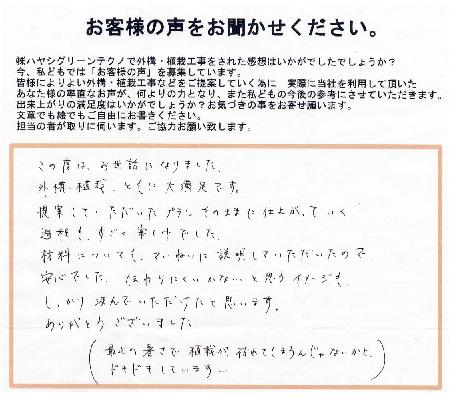 お客様の声をお聞かせください。
㈱ハヤシグリーンテクノで外構・植栽工事をされた感想はいかがでしたでしょうか？
今、私どもでは「お客様の声」を募集しています。
皆様によりよい外構・植栽工事などをご提案していく為に　実際に当社を利用して頂いた
あなた様の率直なお声が、何よりの力となり、また私どもの今後の参考にさせていただきます。
出来上がりの満足度はいかがでしょうか？お気づきの事をお寄せ願います。
文章でも絵でもご自由にお書きください。
担当の者が取りに伺います。ご協力お願い致します。
この度は、お世話になりました。
外構・植栽、ともに大満足です。
提案していただいたプランそのままに仕上がっていく
過程も、すごく楽しみでした。
材料についても、ていねいに説明していただいたので
安心でした。伝わりにくいかな、と思うイメージも、
しっかり汲んでいただけたと思います。
ありがとうございました
（最近の暑さで植栽が枯れてしまうんじゃないかと、
ドキドキしています…）